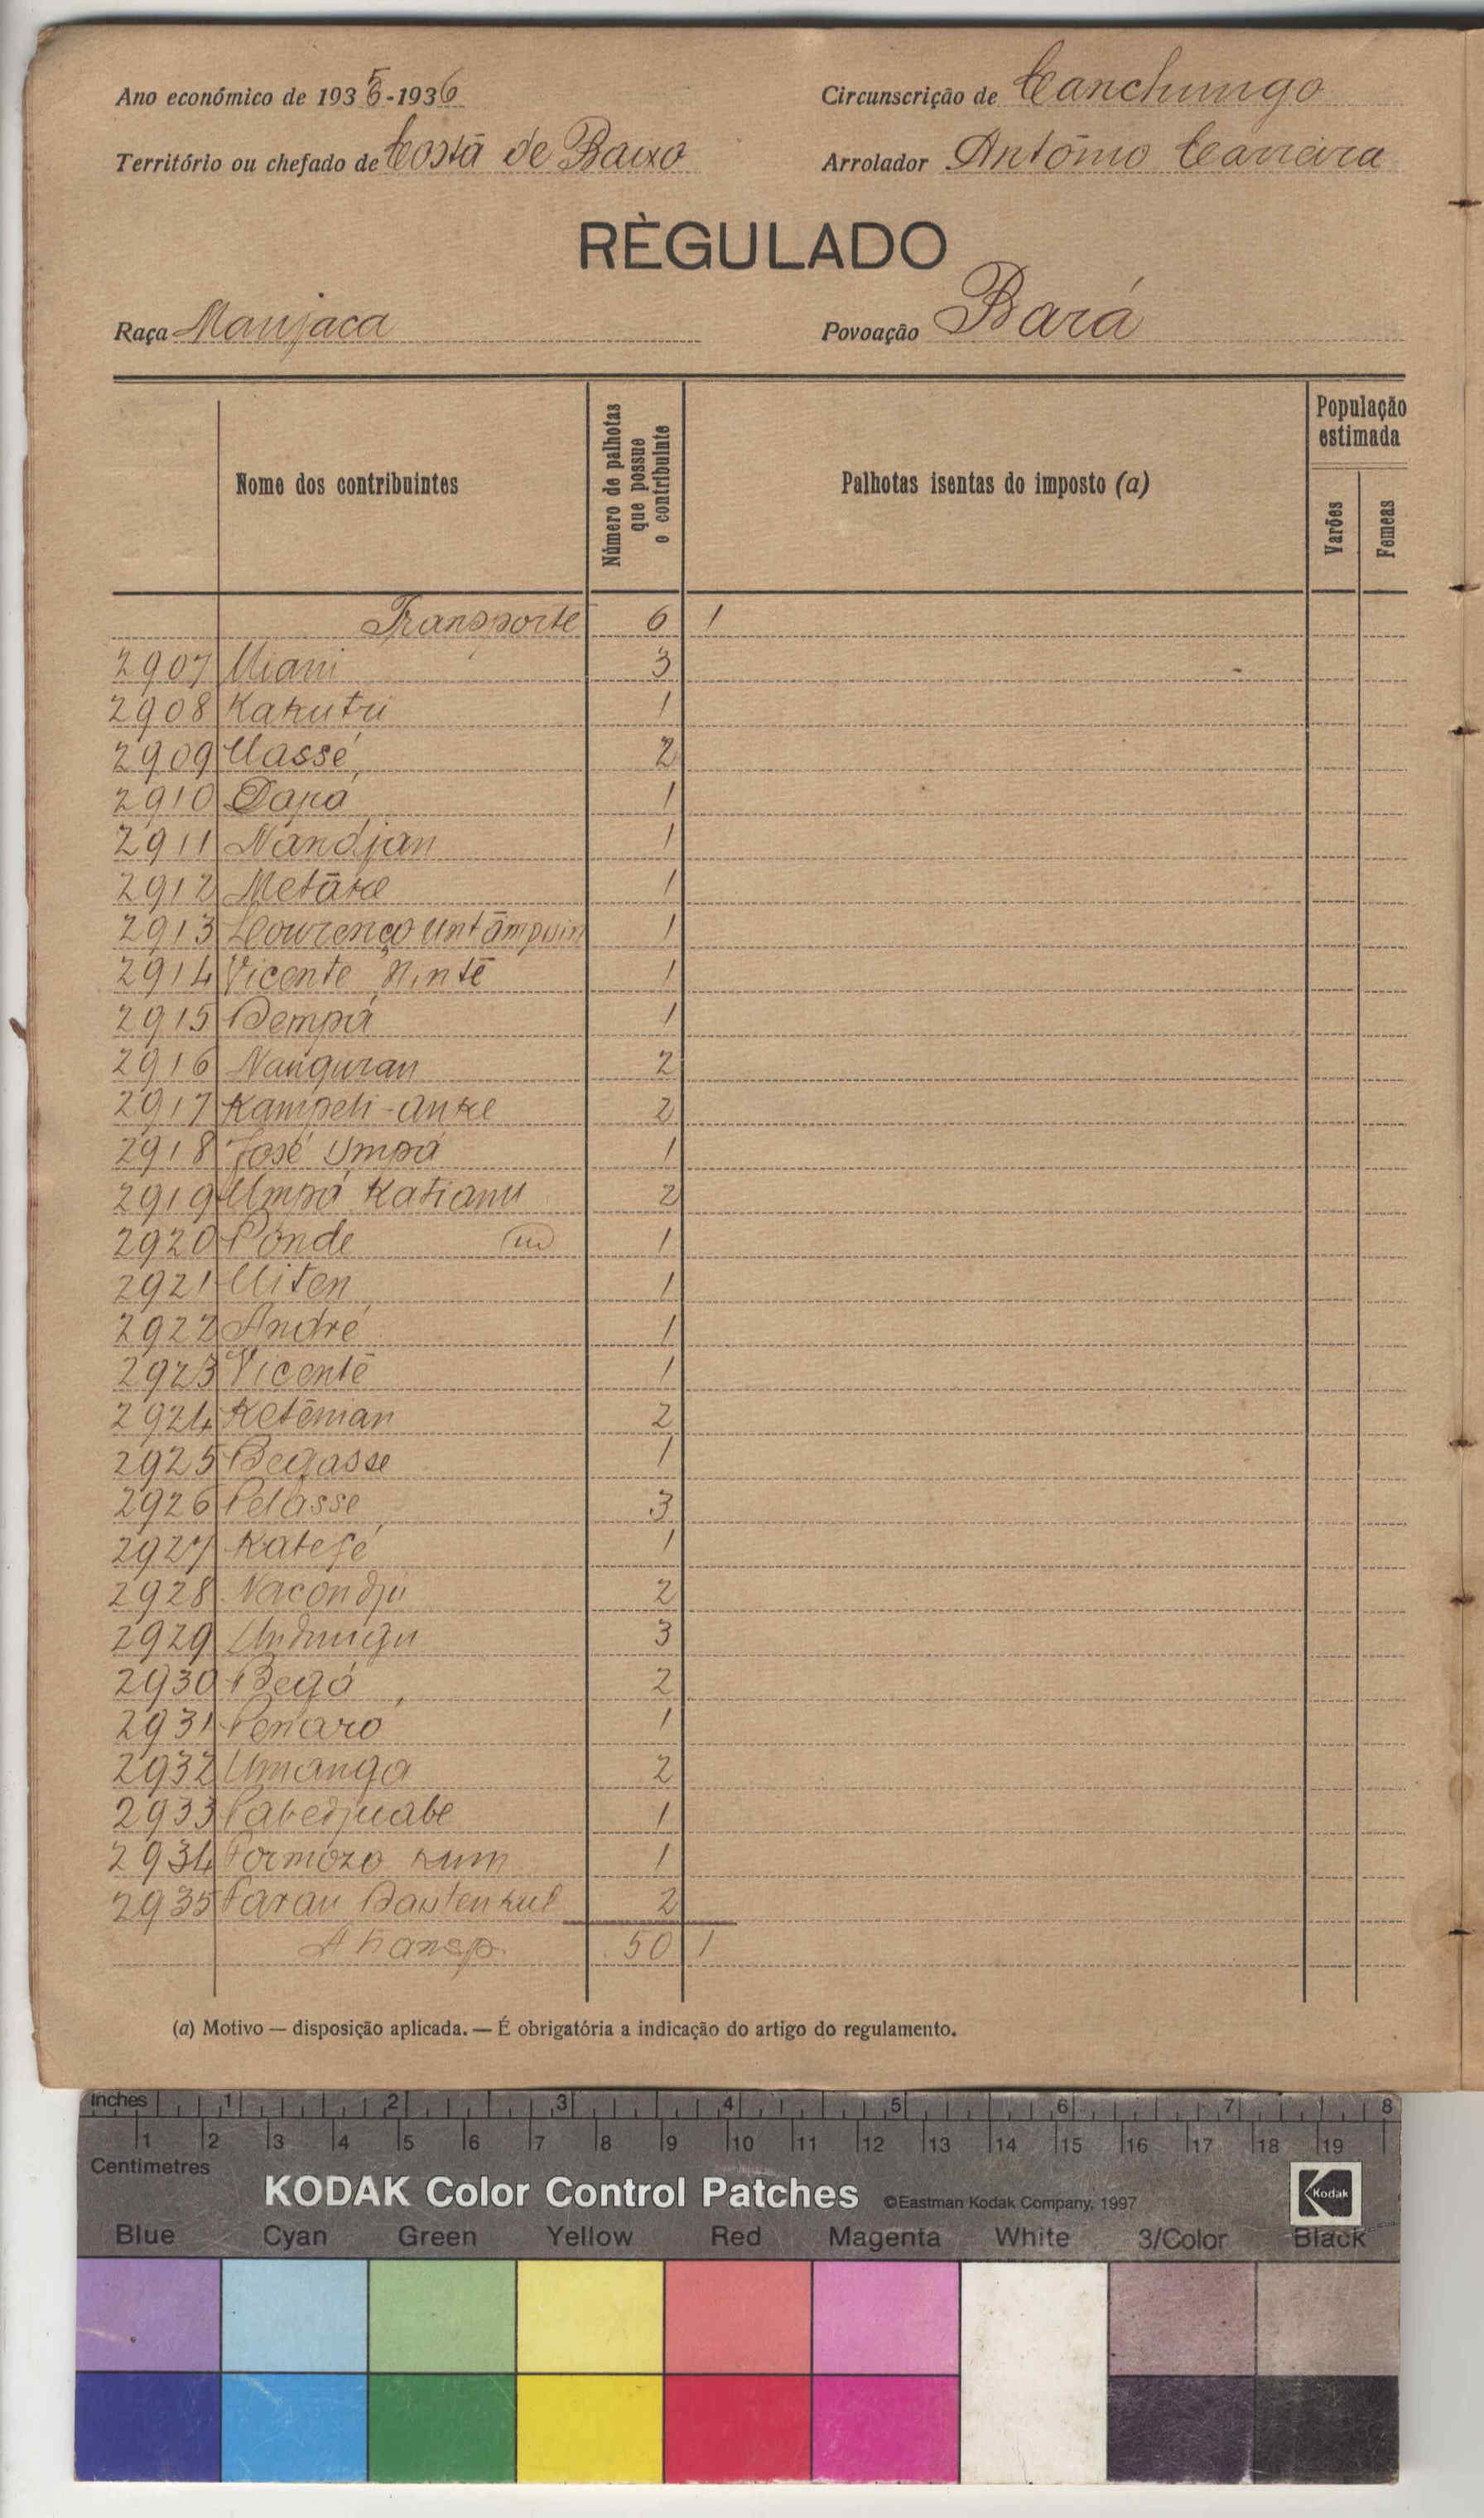 Ano económico de 1935-1936
Circunscrição de Canchungo
Território ou chefado de Costa de Baixo
Arrolador António Carreira
RÈGULADO
Raça Manjaca
Povoação Bará
Nome dos contribuintes
Número de palhotas que possue o contribuinte
Palhotas isentas do imposto (a)
População estimada
Varões
Femeas
Transporte 6 1
2907 Miani 3
2908 Kakutri 1
2909 Uassé 2
2910 Dapá 1
2911 Nandjan 1
2912 Metāke 1
2913 Lourenço Untāmpuin 1
2914 Vicente Nintē 1
2915 Bempá 1
2916 Nanguran 2
2917 Kampeli-anke 2
2918 José Umpá 1
2919 Umpá Katianu 2
2920 Ponde 1
2921 Uiten 1
2922 André 1
2923 Vicentē 1
2924 Ketēman 2
2925 Begasse 1
2926 Pelasse 3
2927 Katefé 1
2928 Nacondju 2
2929 3
2930 Begó 2
2931 Penaró 1
2932 Umanga 2
2933 Pabedjuabe 1
2934 Formozo Kum 1
2935 2
A transp. 50 1
(a) Motivo — disposição aplicada. — É obrigatória a indicação do artigo do regulamento.
Inches 1 2 3 4 5 6 7 8
1 2 3 4 5 6 7 8 9 10 11 12 13 14 15 16 17 18 19
Centimetres
KODAK Color Control Patches ©Eastman Kodak Company, 1997 Kodak
Blue Cyan Green Yellow Red Magenta White 3/Color Black